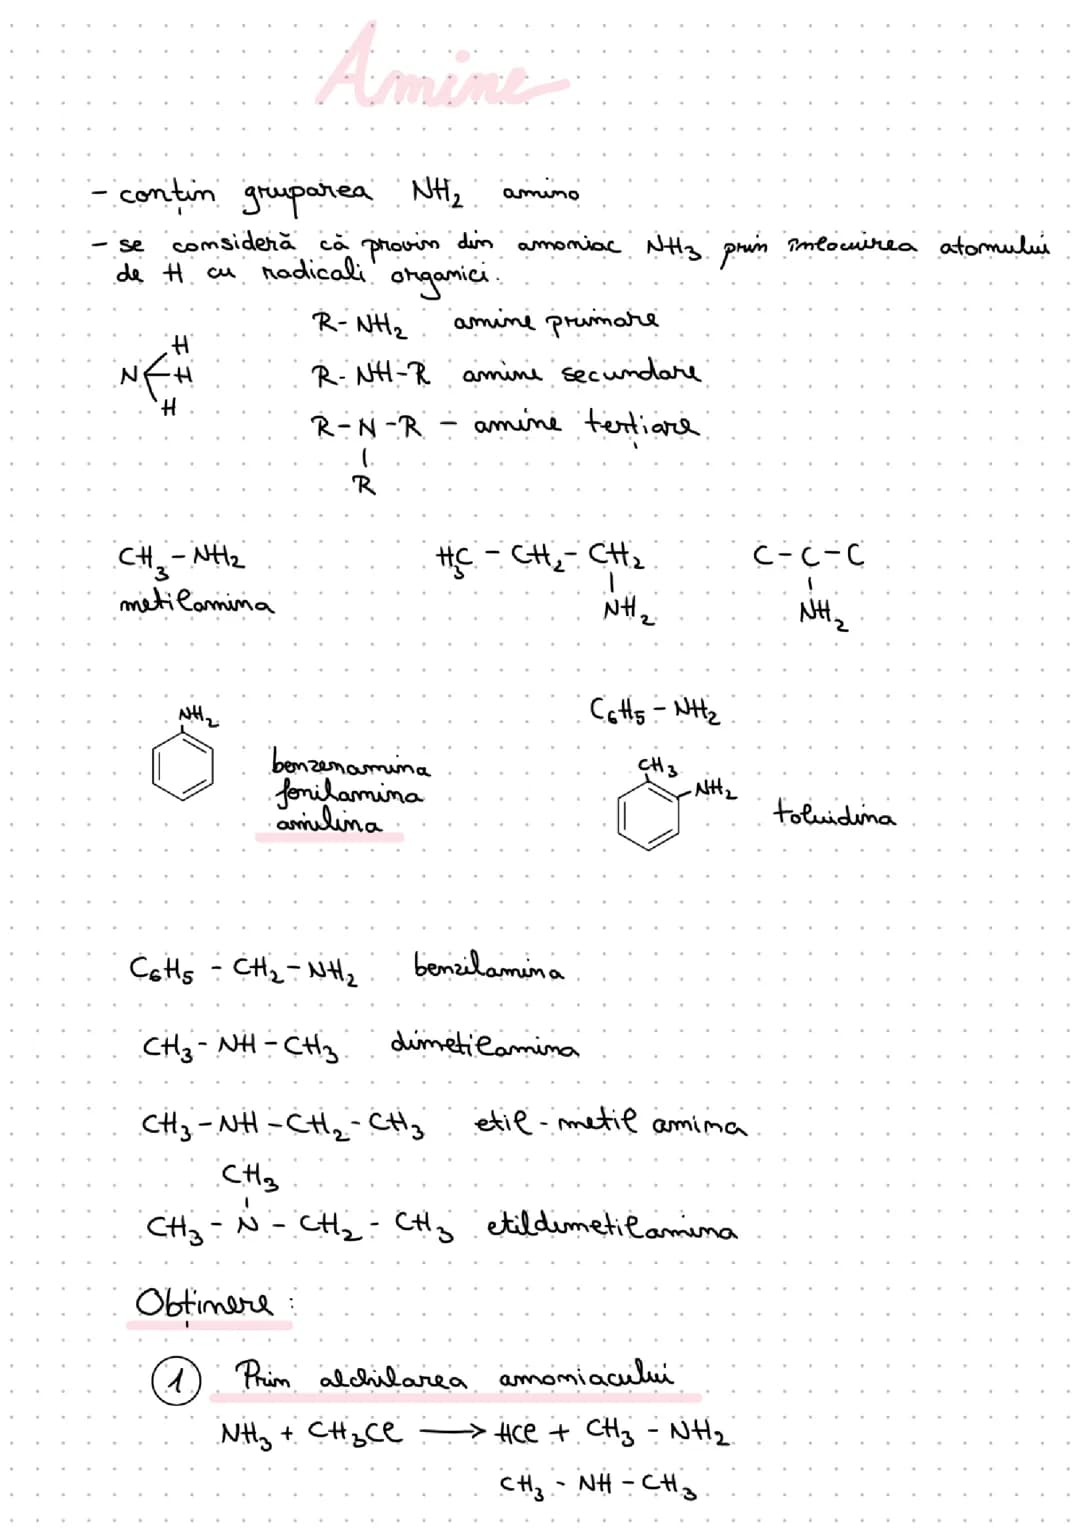 Amine
- conțin gruparea NH₂ amino
- se consideră că provin din amoniac NH₃ prin înlocuirea atomului
de H cu radicali organici.
R-NH₂ amine primare
H
N H
H
R-NH-R amine secundare
R-N-R - amine terțiare
R
CH₃-NH₂
H₃C-CH₂-CH₂
C-C-C
metilamina
NH₂
NH₂
NH₂
C₆H₅-NH₂
benzenamina
fenilamina
anilina
CH₃
-NH₂
toluidina
C₆H₅-CH₂-NH₂ benzilamina
CH₃-NH-CH₃ dimetilamina
CH₃-NH-CH₂-CH₃ etil-metil amina
CH₃
CH₃-N-CH₂-CH₃ etildimetilamina
Obținere:
1 Prin alchilarea amoniacului
NH₃ + CH₃Cl → HCl + CH₃-NH₂
CH₃-NH-CH₃